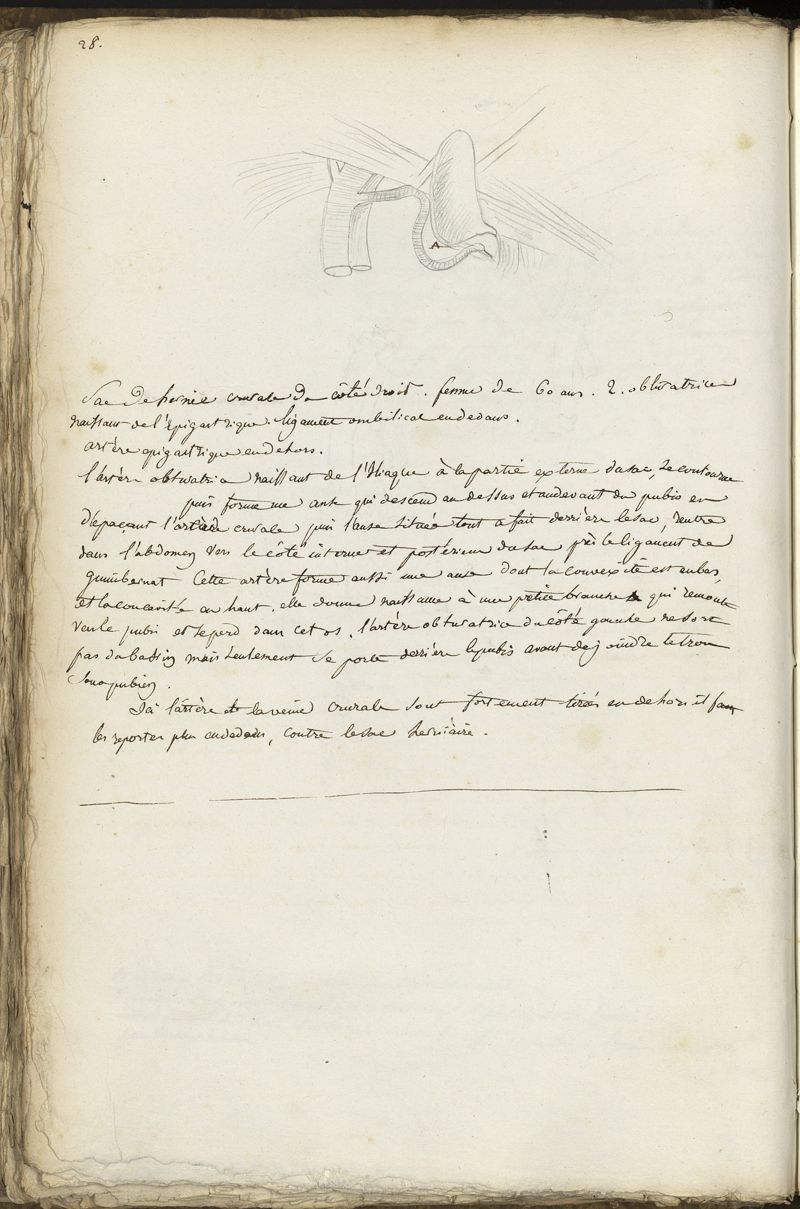 28.
A
Sac de hernie crurale du côté droit. femme de 60 ans. 2. obturatrice
naissant de l'épigastrique. ligament ombilical en dedans.
artère epigastrique en dehors.
l'artère obturatrice naissant de l'iliaque à la partie externe du sac, le contourne
puis forme une anse qui descend au dessus et au devant du pubis en
l'artère crurale puis l'anse située tout a fait derrière le sac, rentre
dans l'abdomen vers le côté interne et postérieur du sac près le ligament de
Guimbernat Cette artère forme aussi une anse dont la convexité est en bas,
et la concavité au haut. elle donne naissance à une petite branche qui remonte
vers le pubis et se perd dans cet os. l'artère obturatrice du côté gauche ne sort
pas du bassin mais seulement se porte derrière le pubis avant de joindre le trou
sous pubien.
l'artère et la veine crurale sont fortement tirés en dehors il faut
les reporter plus en dedans, contre le sac herniaire.